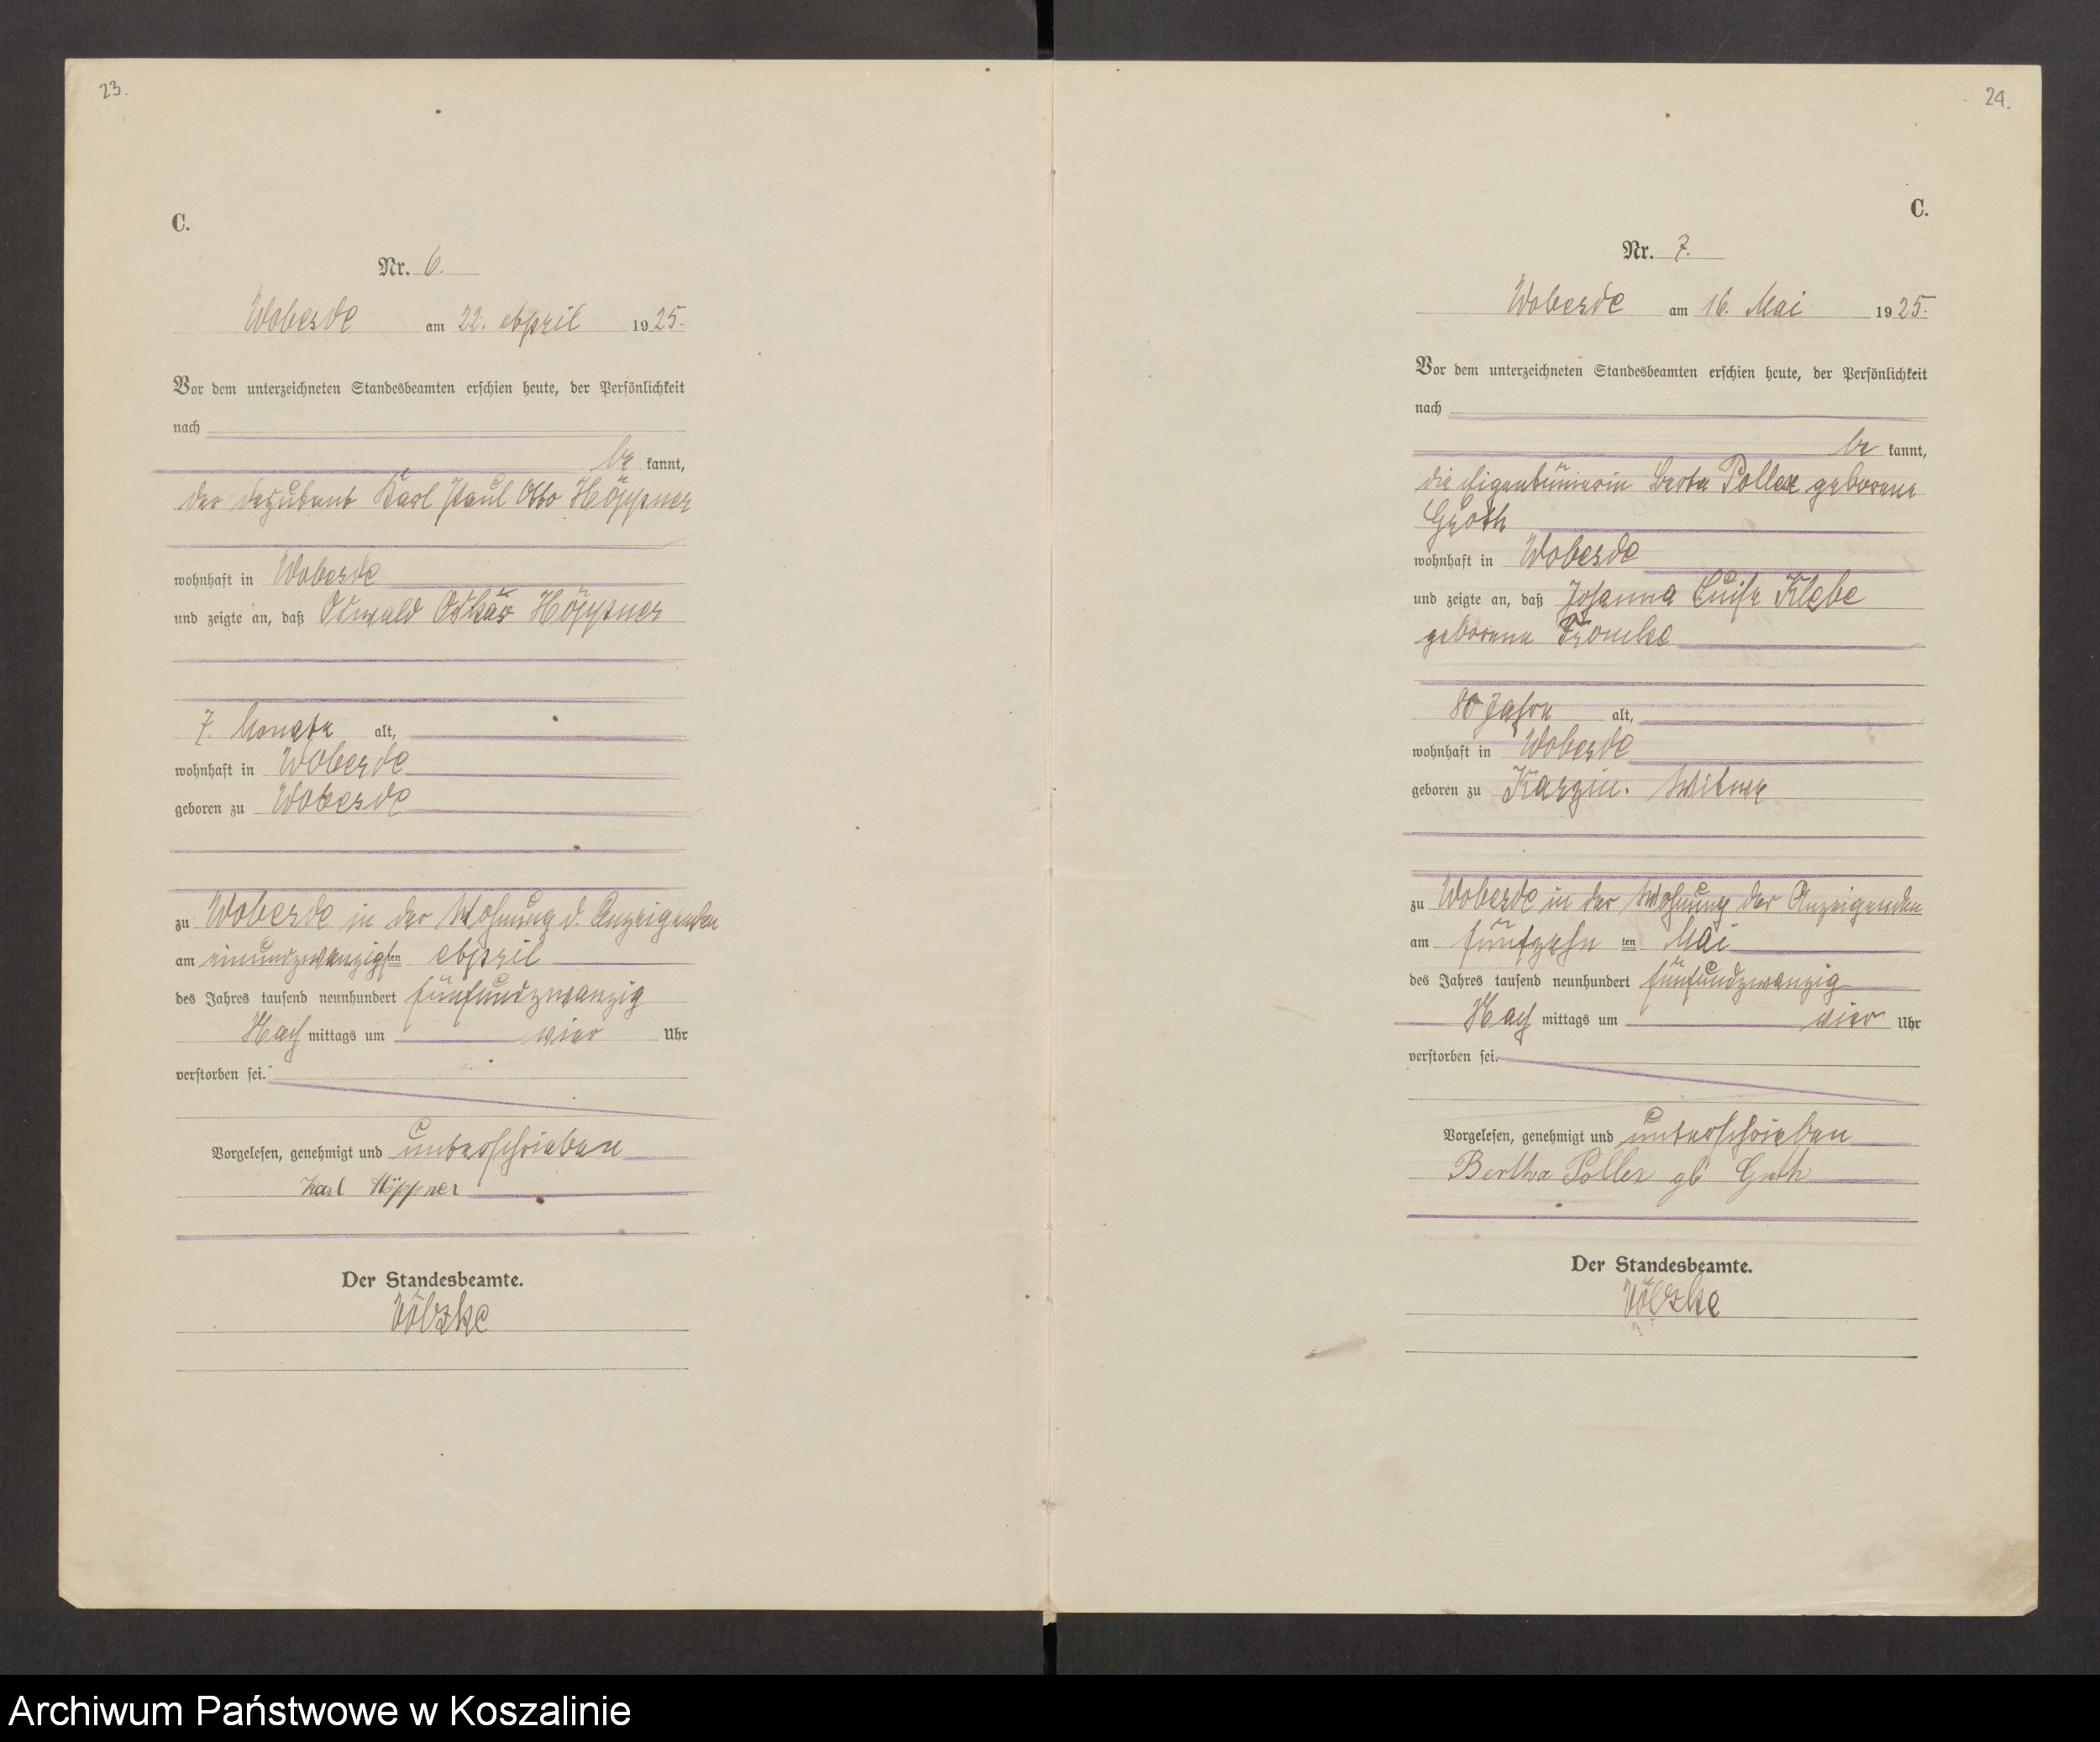 23.
C.
Nr. 6.
Woberde am 22. April 1925.
Vor dem unterzeichneten Standesbeamten erschien heute, der Persönlichkeit
nach
be kannt,
der Deputant Karl Paul Otto Höppner
wohnhaft in Woberde
und zeigte an, daß Oswald Oskar Höppner
7. Monate alt,
wohnhaft in Woberde
geboren zu Woberde
zu Woberde in der Wohnung d. Anzeigenden
am einundzwanzigsten April
des Jahres tausend neunhundert fünfundzwanzig
Nach mittags um vier Uhr
verstorben sei.
Vorgelesen, genehmigt und unterschrieben
Karl Höppner
Der Standesbeamte.
Völzke
24.
C.
Nr. 7.
Woberde am 16. Mai 1925.
Vor dem unterzeichneten Standesbeamten erschien heute, der Persönlichkeit
nach
be kannt,
die Eigentümerin Berta Pollex geborene
Groth
wohnhaft in Woberde
und zeigte an, daß Johanna Luise Klebe
geborene Fromke
80 Jahre alt,
wohnhaft in Woberde
geboren zu Karzin. Witwe
zu Woberde in der Wohnung der Anzeigenden
am fünfzehn ten Mai
des Jahres tausend neunhundert fünfundzwanzig
Nach mittags um vier Uhr
verstorben sei.
Vorgelesen, genehmigt und unterschrieben
Bertha Pollex gb Groth
Der Standesbeamte.
Völzke
Archiwum Państwowe w Koszalinie